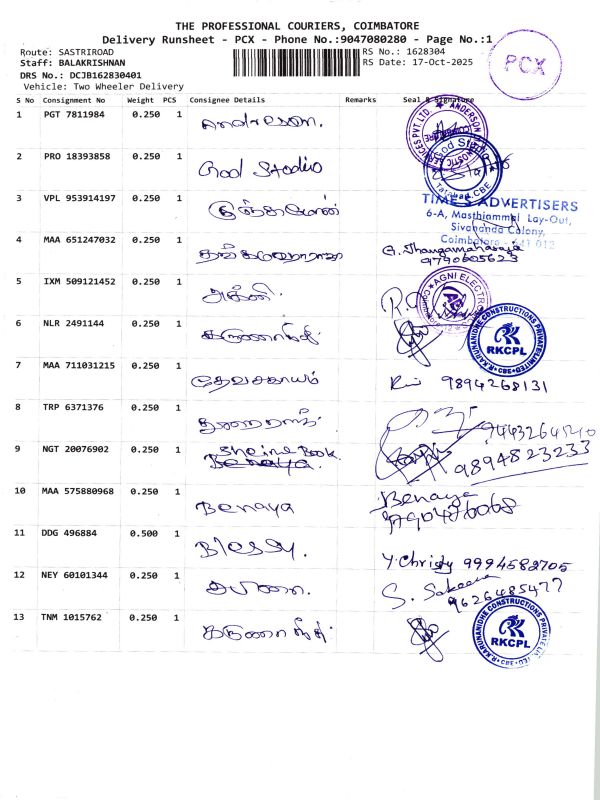 THE PROFESSIONAL COURIERS, COIMBATORE
Delivery Runsheet - PCX - Phone No.:9047080280 - Page No.:1
Route: SASTRIROAD
Staff: BALAKRISHNAN
DRS No.: DCJB162830401
Vehicle: Two Wheeler Delivery
RS No.: 1628304
RS Date: 17-Oct-2025
PCX
S No Consignment No Weight PCS Consignee Details Remarks Seal & Signature
1 PGT 7811984 0.250 1 Anderson.
2 PRO 18393858 0.250 1 God Studio
3 VPL 953914197 0.250 1
TIMES ADVERTISERS
6-A, Masthiammal Lay-Out,
Sivananda Colony,
Coimbatore - 641 012
4 MAA 651247032 0.250 1 தங்கமஹாராஜா G. Thangamaharaja
9790605623
5 IXM 509121452 0.250 1 அக்னி. AGNI ELECTRO
6 NLR 2491144 0.250 1 கருணாநிதி. RKCPL
7 MAA 711031215 0.250 1 தேவசகாயம் 9894268131
8 TRP 6371376 0.250 1
9 NGT 20076902 0.250 1 Sheine Book 9894823233
10 MAA 575880968 0.250 1 Benaya Benaya
11 DDG 496884 0.500 1 Blessy. Y. Christy 9994582705
12 NEY 60101344 0.250 1 சபினா. 9626485477
13 TNM 1015762 0.250 1 கருணாநிதி. RKCPL